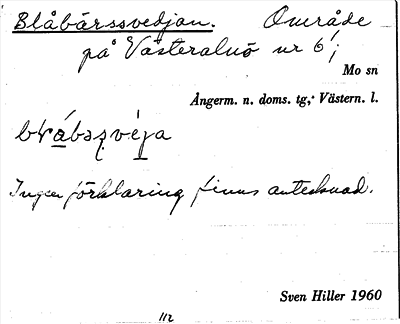 Blåbärssvedjan. Område
på Västeralnö nr 6¹;
Mo sn
Ångerm. n. doms. tg, Västern. l.
Ingen förklaring finns antecknad.
Sven Hiller 1960
112